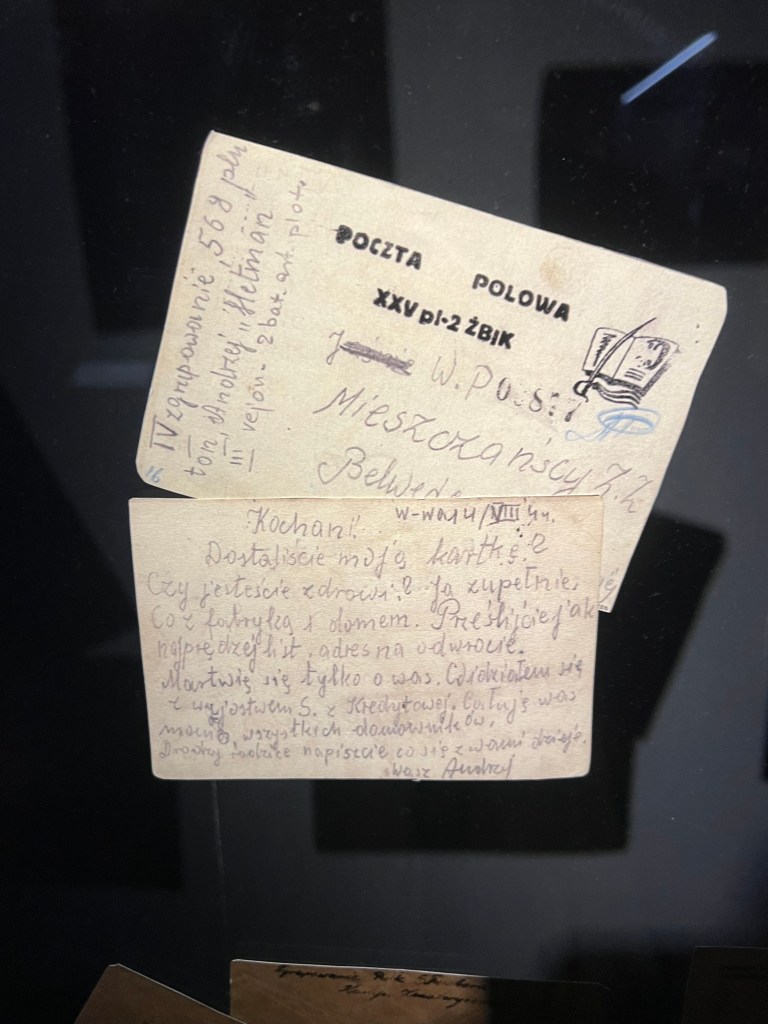 IV zgrupowanie, 568 plu
ton, Andrzej "Hetman"
III rejon - 2 bat. art. plot.
POCZTA POLOWA
XXV pl-2 ŻBIK
W.P.
Mieszczańscy Z.Z
Belwede
16
Kochani!
W-wa 14/VIII 44.
Dostaliście moją kartkę?
Czy jesteście zdrowi? Ja zupełnie.
Co z fabryką i domem. Prześlijcie jak
najprędzej list, adres na odwrocie.
Martwię się tylko o was. Widziałem się
z wujostwem S. z Kredytowej. Całuję was
mocno wszystkich domowników.
napiszcie co się z wami dzieje.
Wasz Andrzej